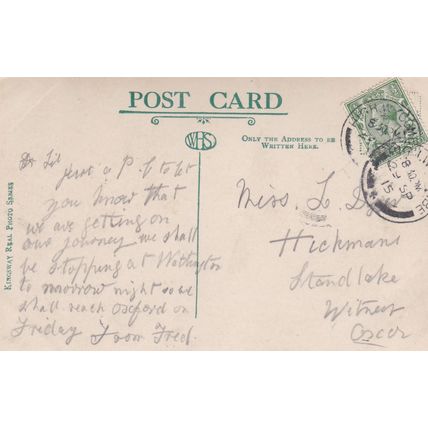 POST CARD
WHS
ONLY THE ADDRESS TO BE
WRITTEN HERE.
KINGSWAY REAL PHOTO SERIES
Dr Lil
Just a P.C to let
you know that
we are getting on
our journey we shall
be stopping at
to morrow night so we
shall reach Oxford on
Friday from Fred.
Miss L
Hickmans
Standlake
Witney
Oxon
8
SP
15